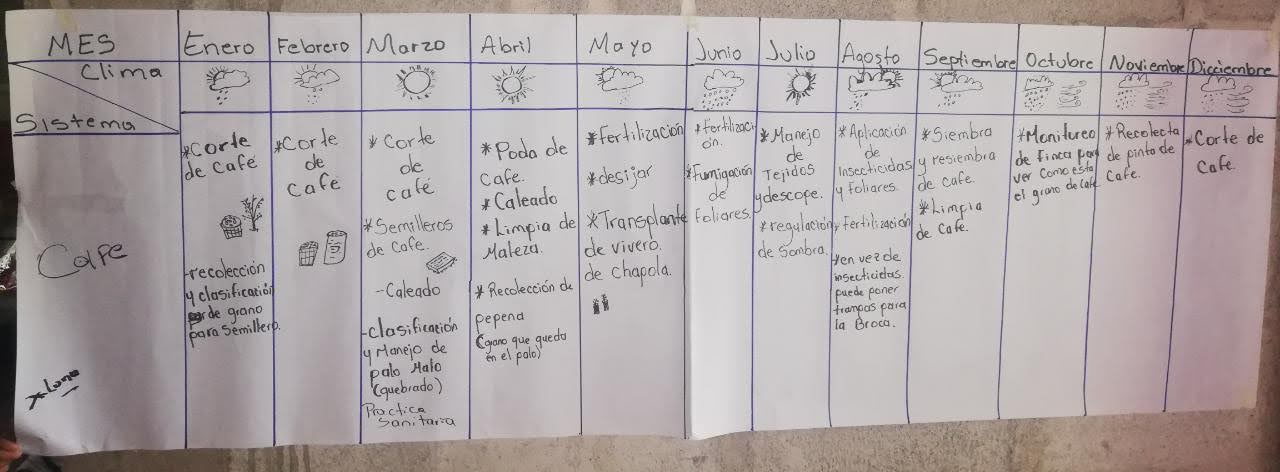 MES
Enero
Febrero
Marzo
Abril
Mayo
Junio
Julio
Agosto
Septiembre
Octubre
Noviembre
Dicciembre
Clima
Sistema
Cafe
*Corte
de Café
-recolección
y clasificación
de grano
para Semillero.
*Corte
de
café
* Corte
de
café
*Semilleros
de Cafe.
-Caleado
-clasificación
y Manejo de
palo Malo
(quebrado)
Practica
Sanitaria
*Poda de
Cafe.
*Caleado
*Limpia de
Maleza.
* Recolección de
pepena
(grano que queda
en el palo)
*Fertilización
*desijar
*Transplante
de vivero.
de chapola.
*fertilizaci
ón.
*Fumigación
de
foliares.
*Manejo
de
Tejidos
y descope.
*regulación
de Sombra.
*Aplicación
de
Insecticidas
y foliares.
y fertilización
*en vez de
insecticidas.
puede poner
trampas para
la Broca.
*Siembra
y resiembra
de cafe.
*Limpia
de Cafe.
*Monitoreo
de finca para
ver como esta
el grano de cafe
*Recolecta
de pinto de
Cafe.
*Corte de
Cafe.